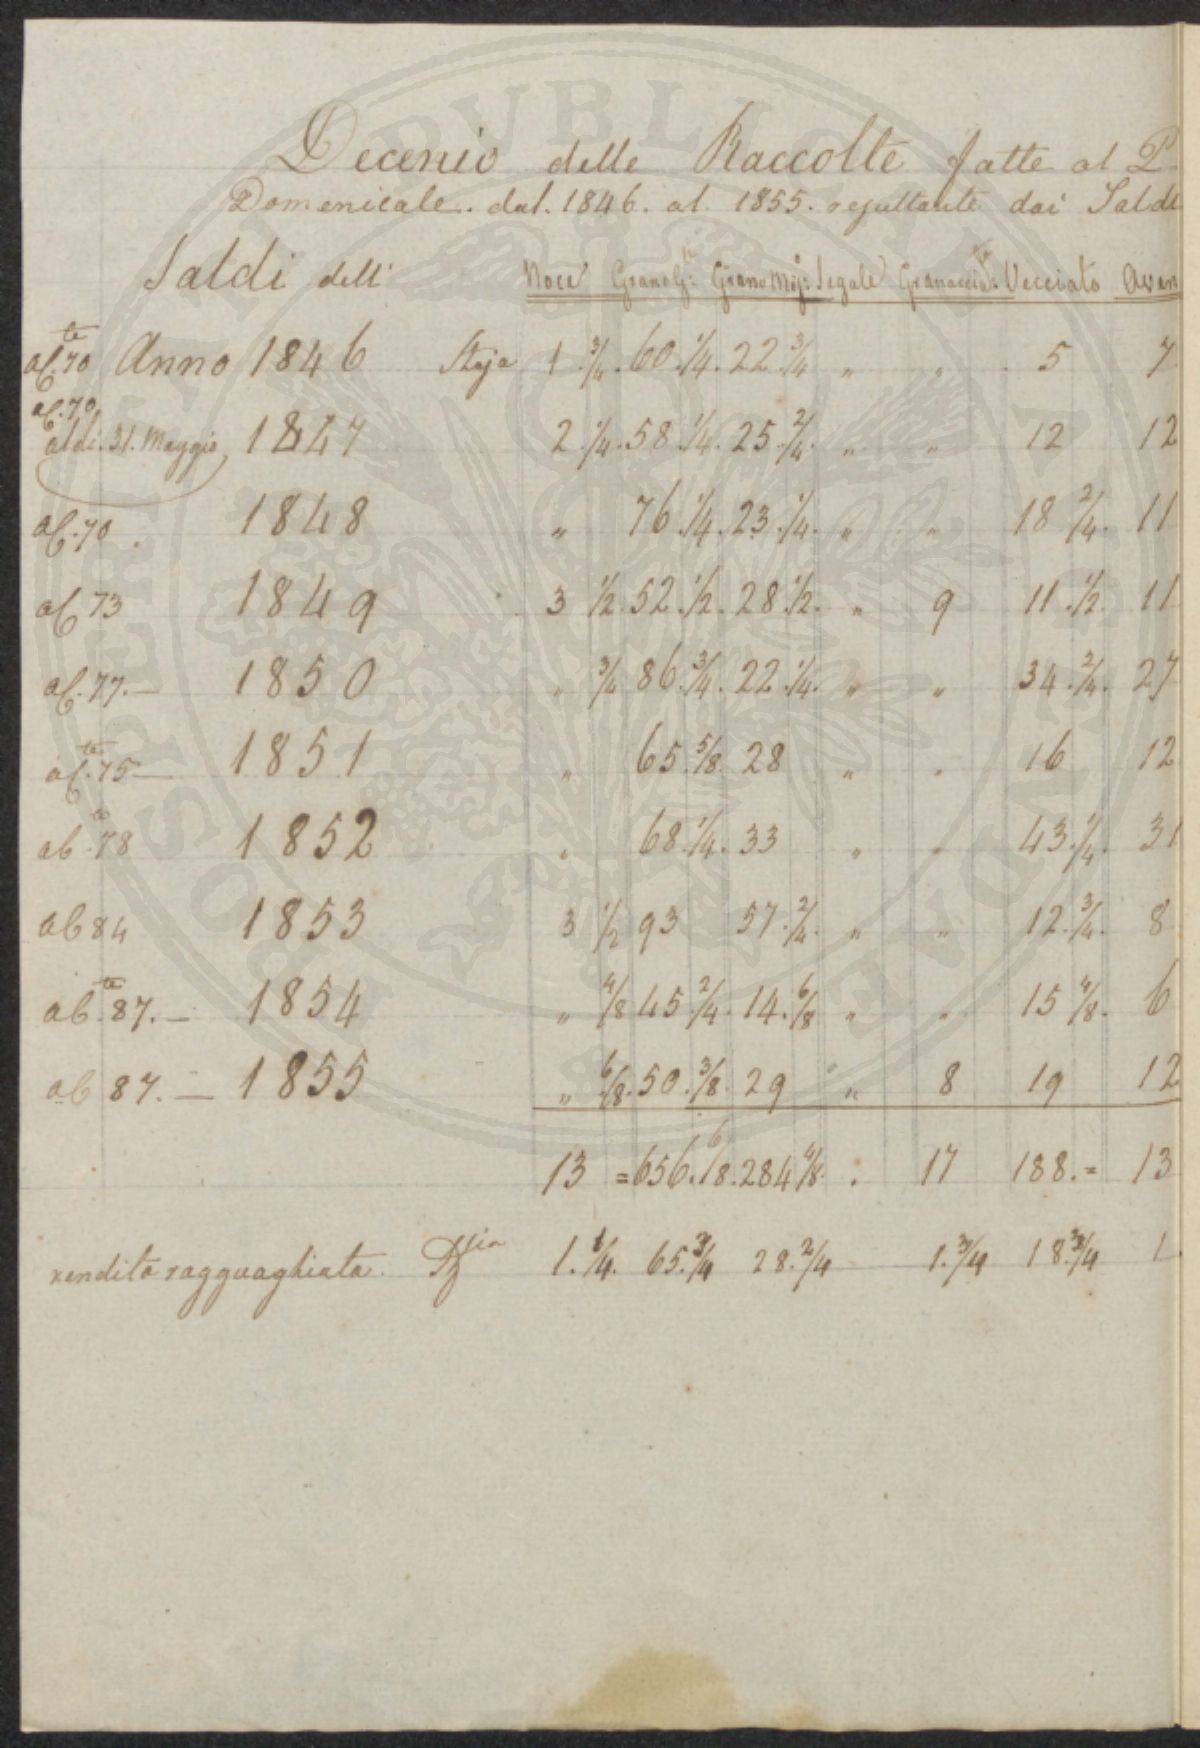 Decenio delle Raccolte fatte al P
Domenicale. dal. 1846. al 1855. resultante dai Saldi
Saldi dell' Noce Grano G: Grano Mij: Segale Granaccia: Vecciato Aven
af.te 70 Anno 1846 Staja 1 3/4. 60. 1/4. 22 3/4 " " 5 7
af. 70
aldi. 31. Maggio 1847 2. 1/4. 58. 1/4. 25. 2/4. " " 12 12
af. 70 1848 " 76. 1/4. 23. 1/4. " " 18 2/4. 11
af 73 1849 3 1/2. 52. 1/2. 28 1/2. " 9 11. 1/2. 11
af. 77. — 1850 " 3/4 86. 3/4. 22. 1/4. " " 34. 2/4. 27
af.te 75 — 1851 " 65. 5/8. 28 " " 16 12
ab.to 78 1852 " 68. 1/4. 33 " " 43. 1/4. 31
ab 84 1853 3 1/2 93 57. 2/4. " " 12. 3/4. 8
ab.te 87. — 1854 " 4/8 45. 2/4. 14. 6/8 " " 15 4/8. 6
ab 87. — 1855 " 6/8. 50. 3/8. 29 " 8 19 12
13 = 656. 6/8. 284 4/8. . 17 188. = 13
rendita ragguagliata 1. 1/4. 65. 3/4 28. 2/4 1. 3/4 18. 3/4 1